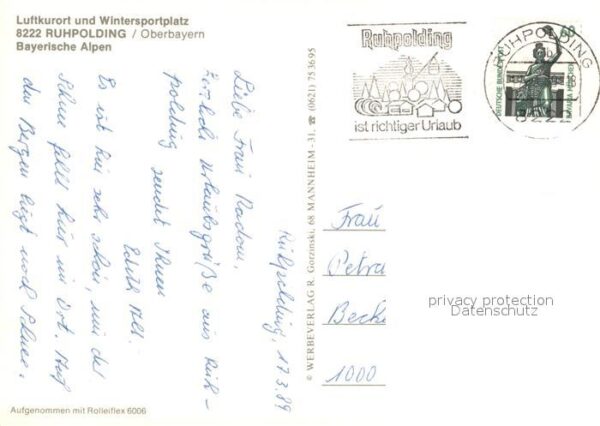 Luftkurort und Wintersportplatz
8222 RUHPOLDING / Oberbayern
Bayerische Alpen
Ruhpolding, 17.3.89
Liebe Frau Radom,
herzliche Urlaubsgrüße aus Ruh-
polding sendet Ihnen
Edith
Es ist hier sehr schön, nur der
Schnee fehlt hier im Ort. Auf
den Bergen liegt noch Schnee.
Aufgenommen mit Rolleiflex 6006
© WERBEVERLAG R. Gorzinski, 68 MANNHEIM - 31, ☎ (0621) 753695
Ruhpolding
ist richtiger Urlaub
RUHPOLDING
8222
60
DEUTSCHE BUNDESPOST
BAVARIA MÜNCHEN
Frau
Petra
Becke
1000
privacy protection
Datenschutz